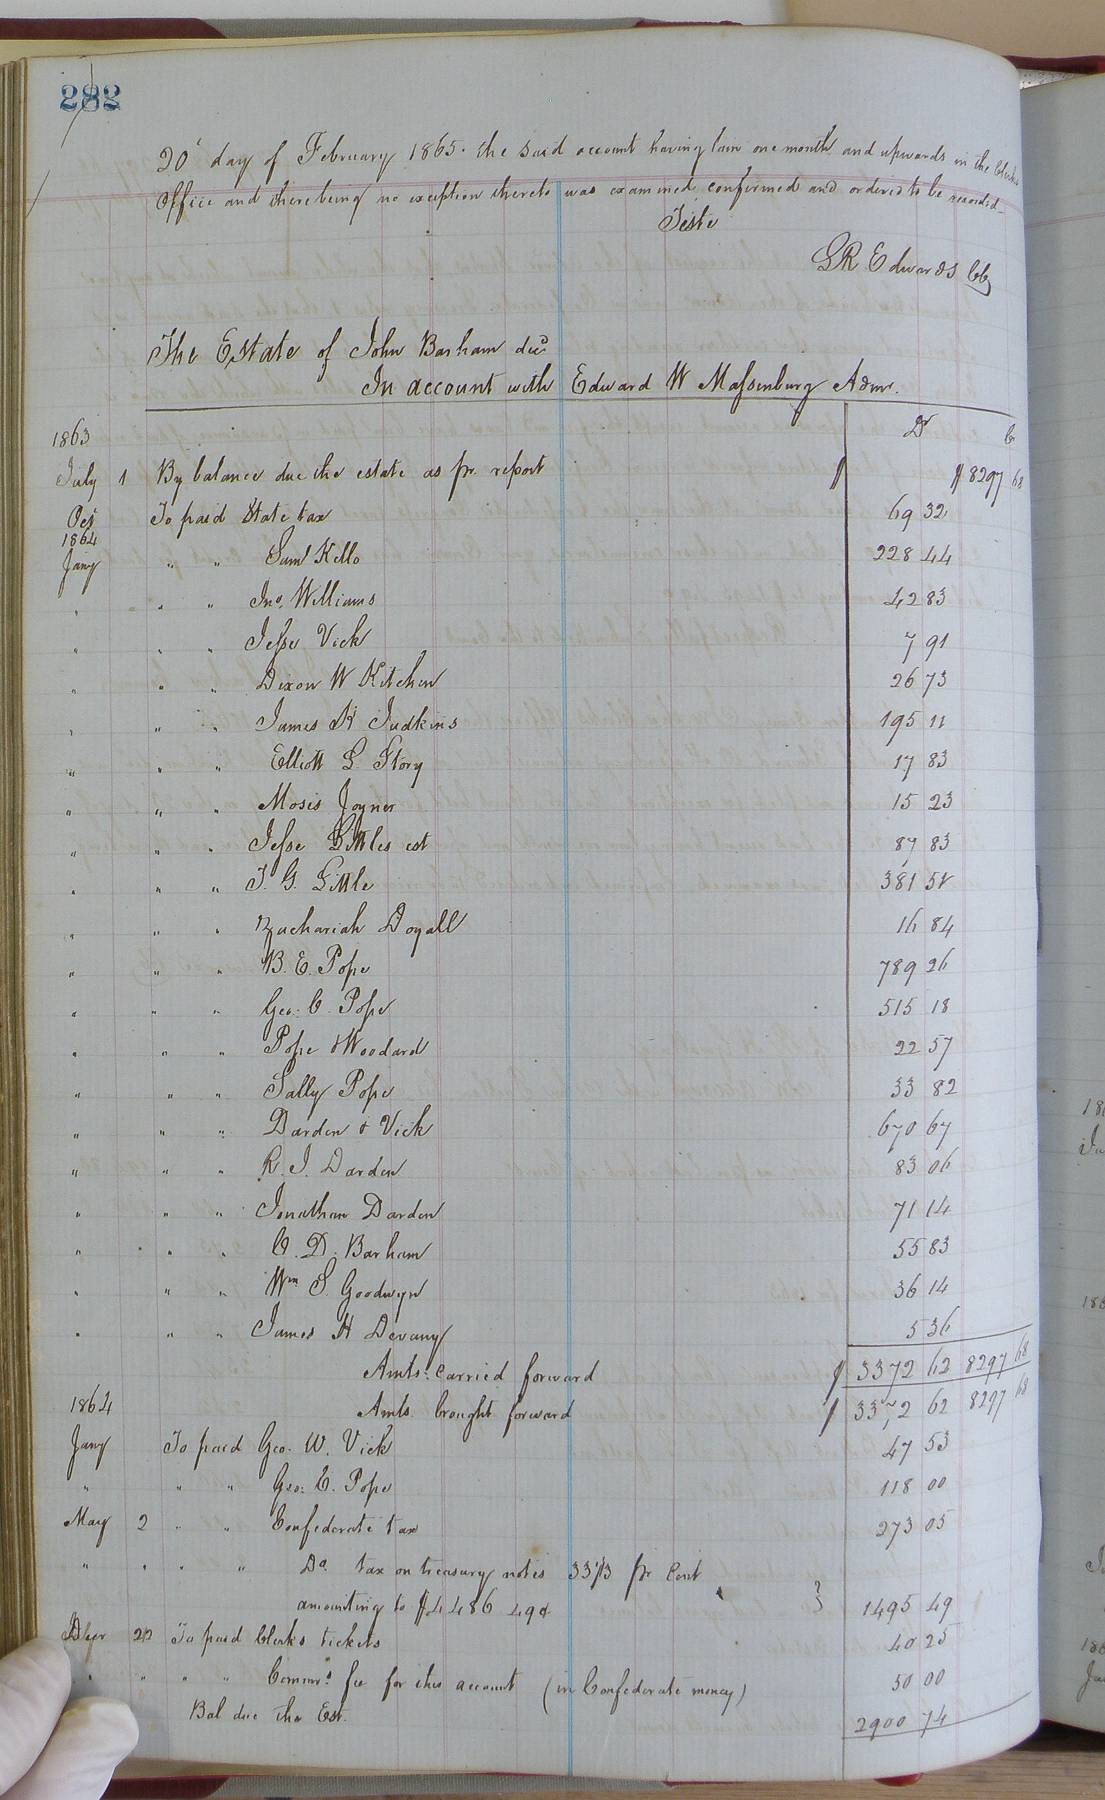 282
20th day of February 1865. The said account having lain one month and upwards in the Clerks
Office and there being no exception thereto was examined, confirmed and ordered to be recorded—
Teste
LR Edwards CC
The Estate of John Barham decd
In account with Edward W Massenburg Admr.
1863 Dr Cr
July 1 By balance due the estate as pr. report $ $8297 68
Oct To paid State tax 69 32
1864
Jany " " Saml Kello 228 44
" " " Jno. Williams 42 83
" " " Jesse Vick 7 91
" " " Dixon W Kitchen 26 73
" " " James H Judkins 195 11
" " " Elliott L Story 17 83
" " " Moses Joyner 15 23
" " " Jesse Littles est 87 83
" " " J. G. Little 381 51
" " " Zachariah Doyall 16 84
" " " B. E. Pope 789 26
" " " Geo: C. Pope 515 18
" " " Pope & Woodard 22 57
" " " Sally Pope 33 82
" " " Darden & Vick 670 67
" " " R. J. Darden 83 06
" " " Jonathan Darden 71 14
" " " C. D. Barham 55 83
" " " Wm S. Goodwyn 36 14
" " " James H Devany 5 36
Amts. Carried forward $ 3372 62 8297 68
1864 Amts. brought forward $ 3372 62 8297 68
Jany To paid Geo. W. Vick 47 53
" " " Geo: C. Pope 118 00
May 2 " " Confederate tax 273 05
" " " " Do. tax on treasury notes 33 1/3 pr Cent
amounting to $4486 49¢ } 1495 49
Decr 20 To paid Clerks tickets 40 25
" " " " Commrs. fee for this account (in Confederate money) 50 00
Bal due the Est. 2900 74